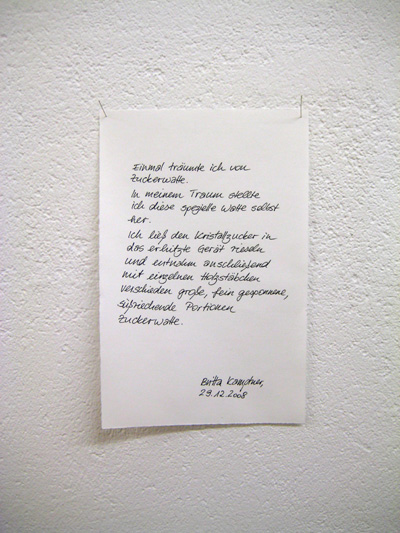 Einmal träumte ich von
Zuckerwatte.
In meinem Traum stellte
ich diese spezielle Watte selbst
her.
Ich ließ den Kristallzucker in
das erhitzte Gerät rieseln
und entnahm anschließend
mit einzelnen Holzstäbchen
verschieden große, fein gesponnene,
süßriechende Portionen
Zuckerwatte.
Britta
29.12.2008